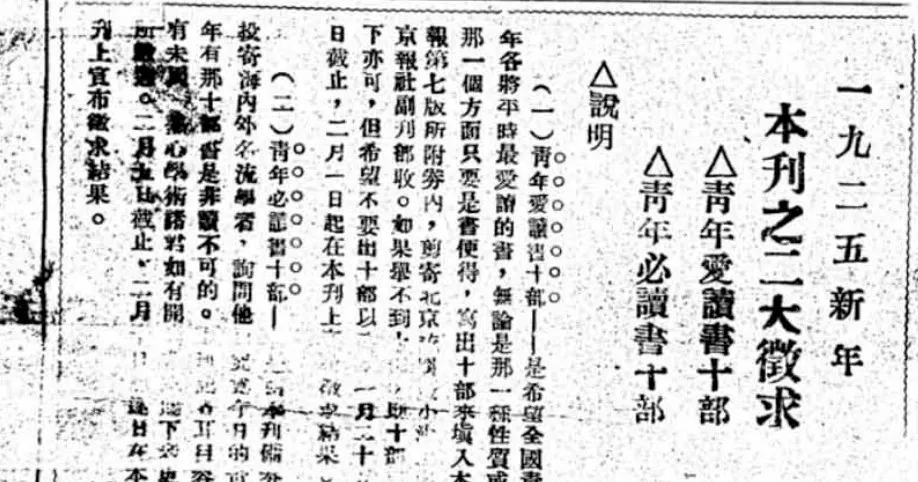 一九二五新年
本刊之二大徵求
△靑年愛讀書十部
△靑年必讀書十部
△說明
（一）靑年愛讀書十部——是希望全國靑
年各將平時最愛讀的書，無論是那一種性質或
那一個方面只要是書便得，寫出十部來塡入本
報第七版所附券內，剪寄北京
京報社副刊部收。如果舉不到 十部
下亦可，但希望不要出十部以 一月二十
日截止，二月一日起在本刊上 徵求結果
（二）靑年必讀書十部— 本刊備券
投寄海內外名流學者，詢問他 靑年的
年有那十部書是非讀不可的。
有未周 熱心學術諸君如有開
二月五日截止，二月 逐日在本
刊上宣布徵求結果。